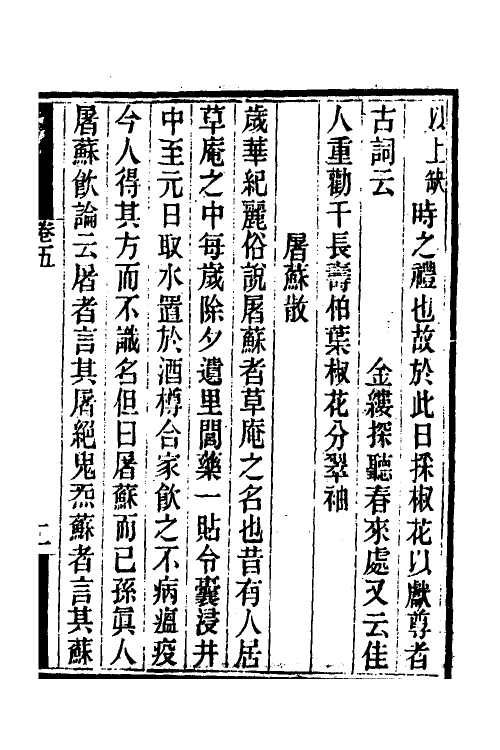 以上缺時之禮也故於此日採椒花以獻尊者
古詞云　金縷探聽春來處又云佳
人重勸千長壽伯葉椒花分翠袖
屠蘇散
歲華紀麗俗說屠蘇者草庵之名也昔有人居
草庵之中每歲除夕遺里閭藥一貼令囊浸井
中至元日取水置於酒樽合家飲之不病瘟疫
今人得其方而不識名但曰屠蘇而已孫眞人
屠蘇飲論云屠者言其屠絕鬼炁蘇者言其蘇
卷五
二